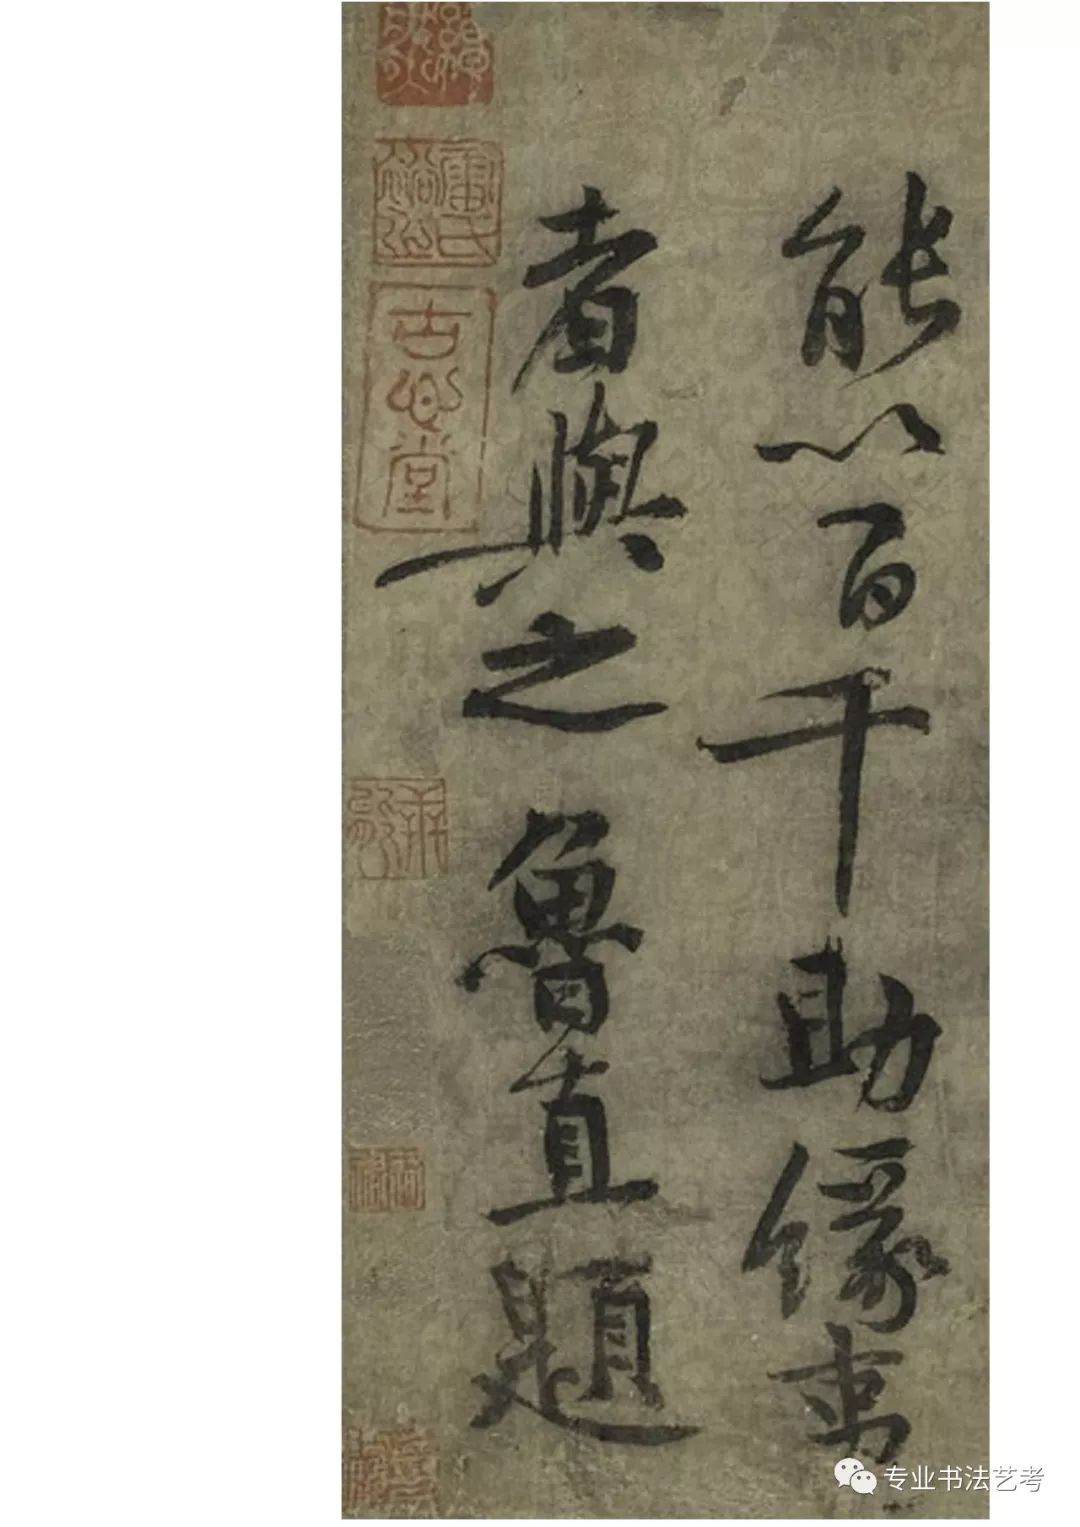 能以百千助緣事
者與之魯直題
古心堂
专业书法艺考